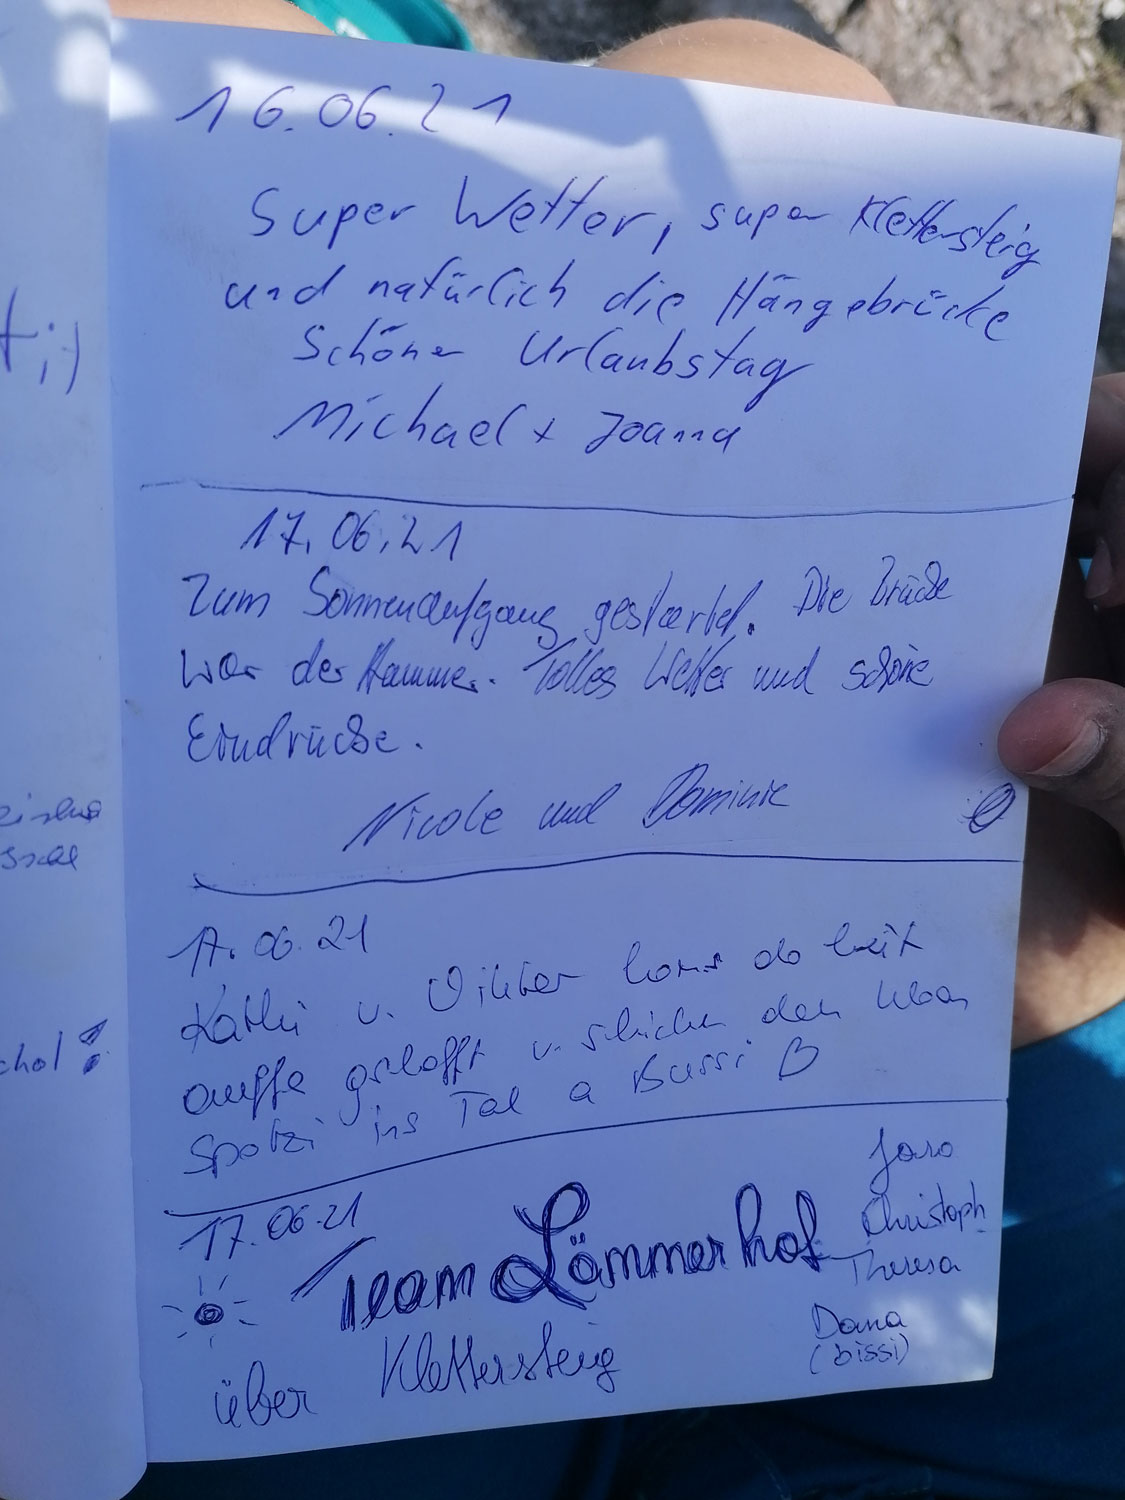 t ;)
eissl
chol!
16.06.21
Super Wetter, super Klettersteig
und natürlich die Hängebrücke
Schöner Urlaubstag
Michael + Joanna
17.06.21
Zum Sonnenaufgang gestartet. Die Brücke
war der Hammer. Tolles Wetter und schöne
Eindrücke.
Nicole und Dominic
17.06.21
Kathi u. Viktor homs do heit
auffe gschofft u. schicken den liaben
Spatzi ins Tal a Bussi
17.06.21
Team Lämmerhof
über Klettersteig
Jaro
Christoph
Theresa
Dana
(bissi)